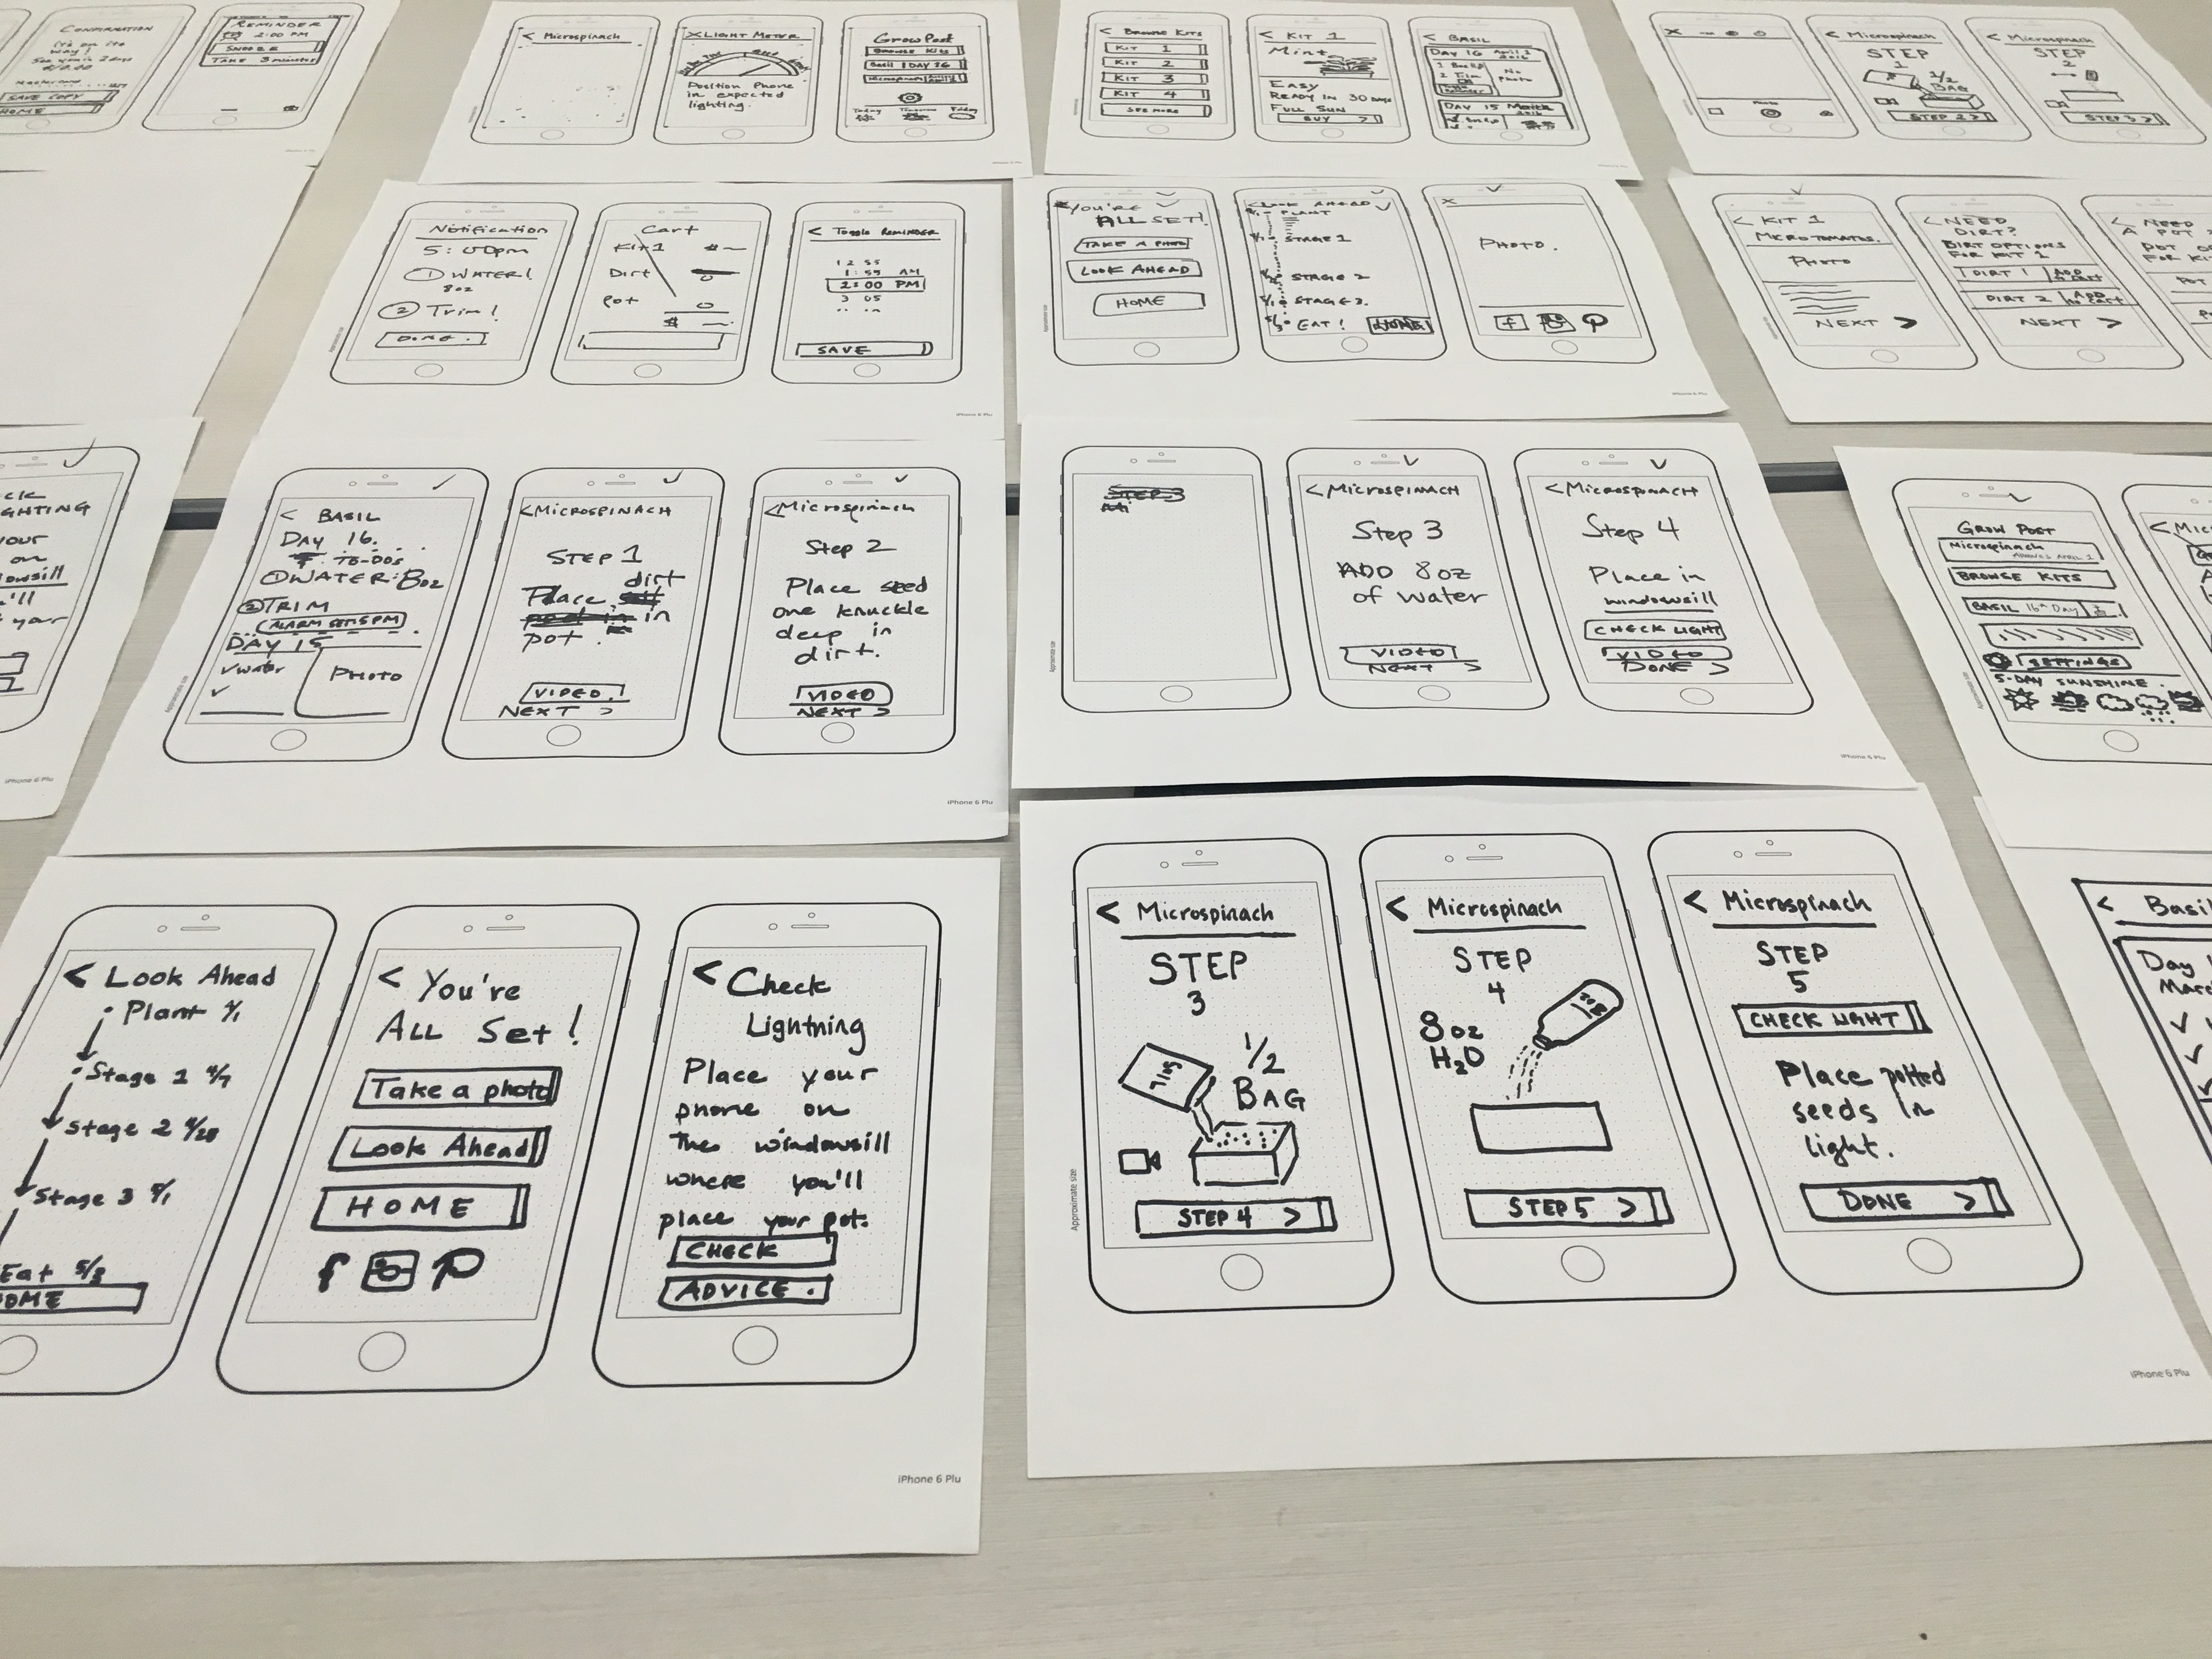 CONFIRMATION
REMINDER
2:00 PM
SNOOZE
SAVE COPY
HOME
< Microspinach
X LIGHT METER
Position Phone
in expected
lighting.
Grow Post
BROWSE KITS
Basil DAY 16
Today
< BROWSE KITS
KIT 1
KIT 2
KIT 3
KIT 4
SEE MORE
< KIT 1
Mint
EASY
READY IN 30 DAYS
FULL SUN
BUY >
< BASIL
DAY 16 April 1
No
photo
DAY 15 March
X
Photo
< Microspinach
STEP
1
1/2
BAG
STEP 2 >
< Microspinach
STEP
2
STEP 3 >
Notification
5:00pm
① WATER!
8oz
② Trim!
DONE.
Cart
Kit 1
Dirt
Pot
$
< TOGGLE REMINDER
12 55
1:55 AM
2:00 PM
3 05
SAVE
YOU'RE
ALL SET!
TAKE A PHOTO
LOOK AHEAD
HOME
< LOOK AHEAD
PLANT
STAGE 1
STAGE 2
STAGE 3.
EAT!
HOME
X
PHOTO.
f
iPhone 6 Plu
< KIT 1
MICROTOMATOES.
PHOTO
NEXT >
< NEED
DIRT?
DIRT OPTIONS
FOR KIT 1
DIRT 1 ADD TO CART
DIRT 2 ADD TO CART
NEXT >
< NEED
A POT
FOR KI
< BASIL
DAY 16.
TO-DOS
① WATER: 8oz
② TRIM
ALARM SET 5PM
DAY 15
✓ water
✓
PHOTO
< MICROSPINACH
STEP 1
Place dirt
in
pot.
VIDEO!
NEXT >
< Microspinach
Step 2
Place seed
one knuckle
deep in
dirt.
VIDEO
NEXT >
iPhone 6 Plu
STEP 3
< MICROSPINACH
Step 3
ADD 8oz
of water
VIDEO
NEXT >
< MICROSPINACH
Step 4
Place in
windowsill
CHECK LIGHT
VIDEO
DONE >
iPhone 6 Plu
GROW POST
Microspinach
ARRIVES APRIL 1
BROWSE KITS
BASIL 16th Day
SETTINGS
5-DAY SUNSHINE.
ck
GHTING
your
on
your
iPhone 6 Plu
< Look Ahead
Plant 4/1
Stage 1 4/7
Stage 2 4/20
Stage 3 5/1
Eat 5/3
HOME
< You're
ALL Set!
Take a photo
Look Ahead
HOME
f
< Check
Lightning
Place your
phone on
the windowsill
where you'll
place your pot.
CHECK
ADVICE.
iPhone 6 Plu
Approximate size
< Microspinach
STEP
3
SOIL
1/2
BAG
STEP 4 >
< Microspinach
STEP
4
8oz
H2O
STEP 5 >
< Microspinach
STEP
5
CHECK LIGHT
Place potted
seeds in
light.
DONE >
iPhone 6 Plu
< Basil
Day 1
Marc